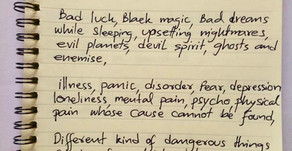 Bad luck, Black magic, Bad dreams
while sleeping, upsetting nightmares,
evil planets, devil spirit, ghosts and
enemise,
illness, panic, disorder, fear, depression
loneliness, mental pain, psycho, physical
pain whose cause cannot be found,
Different kind of dangerous things